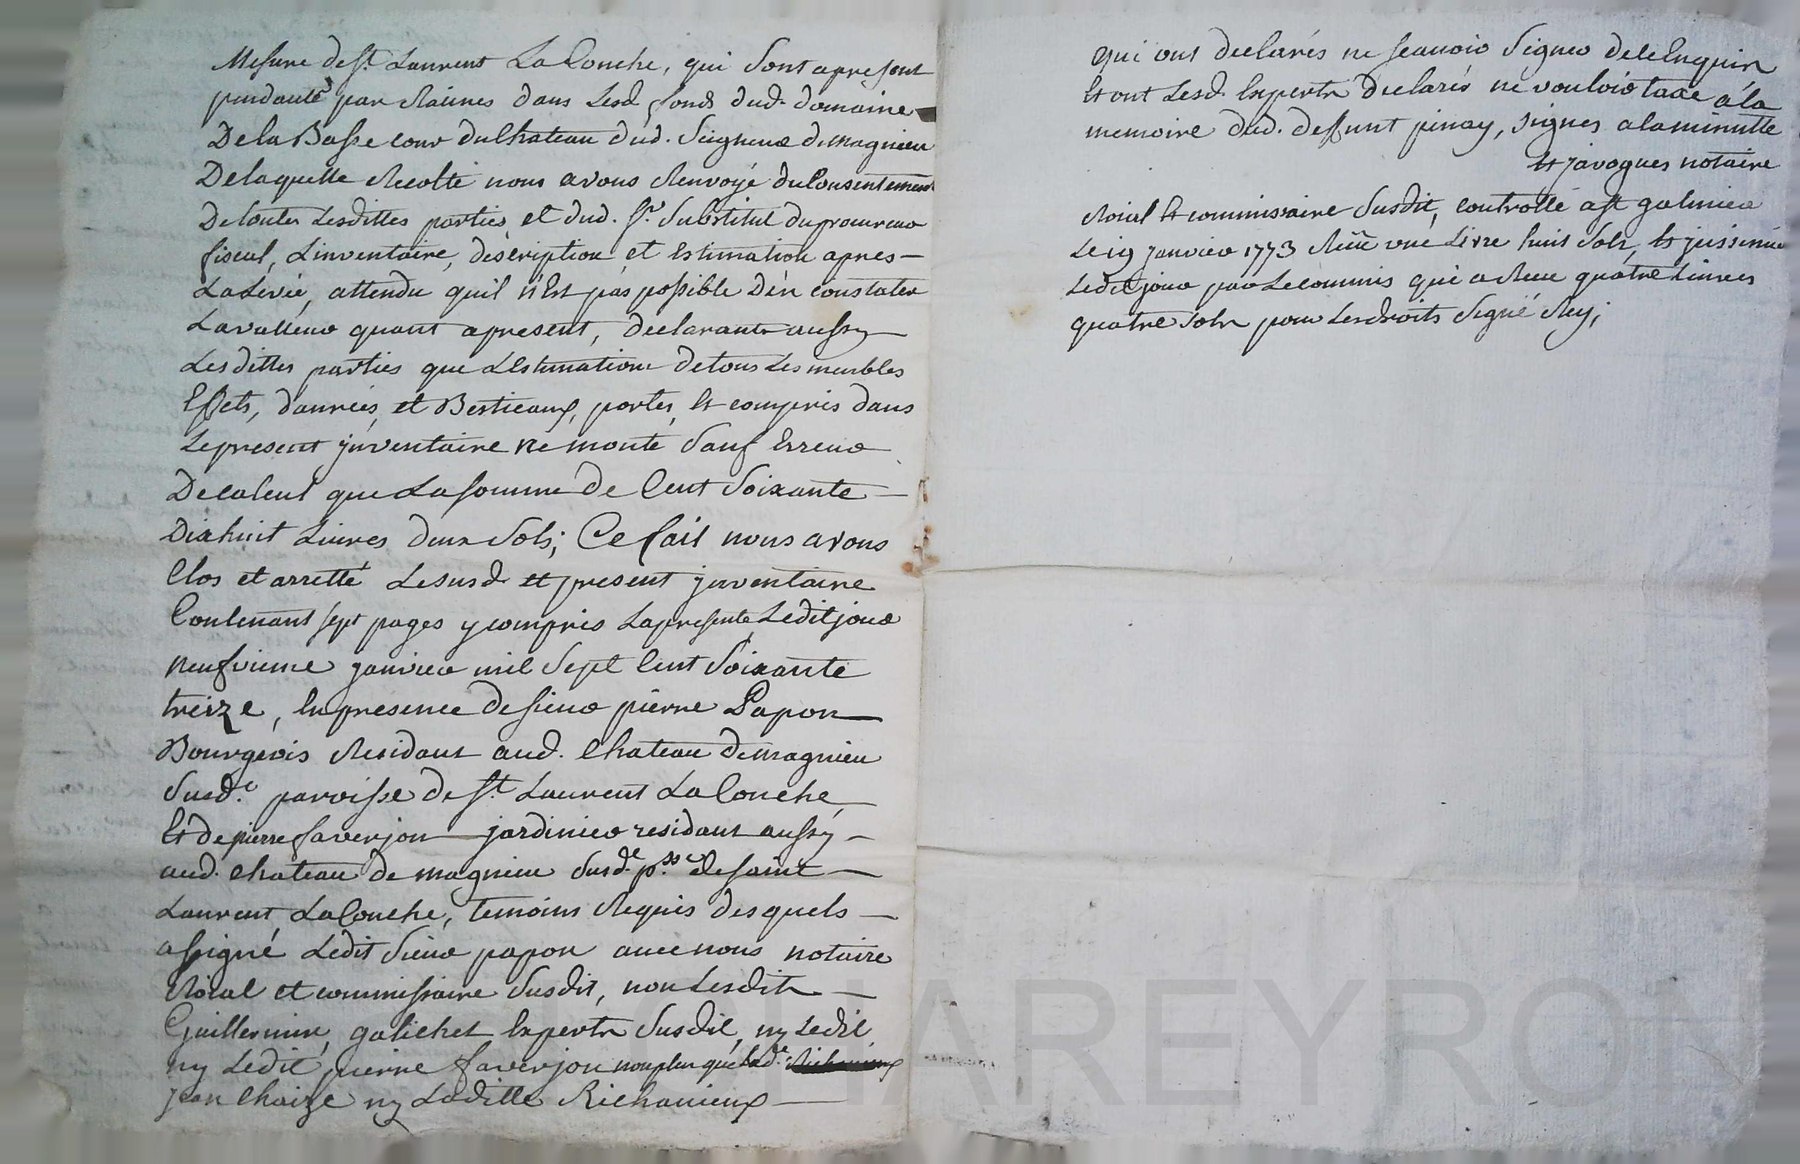 Mesure de St. Laurent La Conche, qui sont apresent
pendante par Racines dans Lesd. fonds dud. domaine
De la Basse cour du Chateau dud. Seigneur de magnieu
De laquelle Recolte nous avons Renvoyé du Consentement
De toutes Lesdittes parties, et dud. Sr. Substitut du procureur
fiscal, L'inventaire, description, et Estimation apres
La Levée, attendu quil n'Est pas possible D'en constater
La valleur quant apresent, declarants aussy
Les dittes parties que L'Estimation de tous Les meubles
Effets, danrées, et Bestieaux, portés, Et compris dans
Le present jnventaire ne monte sauf Erreur
De calcul que La somme de Cent Soixante
Dix huit Livres deux Sols; Ce fait nous avons
Clos et arretté Le susd. et present jnventaire
Contenant sept pages y compris La presente Ledit jour
neufvieme janvier mil Sept Cent Soixante
treize, En presence de sieur pierre Papon
Bourgeois Residant aud. Chateau de magnieu
Susd. paroisse de St. Laurent La Conche
Et de pierre faverjon jardinier residant aussy
aud. chateau de magnieu Susde. psse. de saint
Laurent La Conche, temoins Requis desquels
a signé Ledit Sieur papon avec nous notaire
Roial et commissaire Susdit, non Lesdits
Guillermin, galichet Experts Susdit, ny Ledit
ny Ledit pierre faverjon non plus que Lade.
jean Chaize ny Laditte Richanieux
qui ont declarés ne scavoir Signer de ce Enquis
Et ont Lesd. Experts declarés ne vouloir taxe a la
memoire dud. deffunt pinay, signes a la minutte
Et javogues notaire
Roial Et commissaire Susdit, controllé a St galmier
Le 19 Janvier 1773 Reçu une Livre huit Sols, Et jnsinué
Ledit jour par Le commis qui a Receu quatre Livres
quatre Sols pour Les droits Signé Rey;
HAREYRON